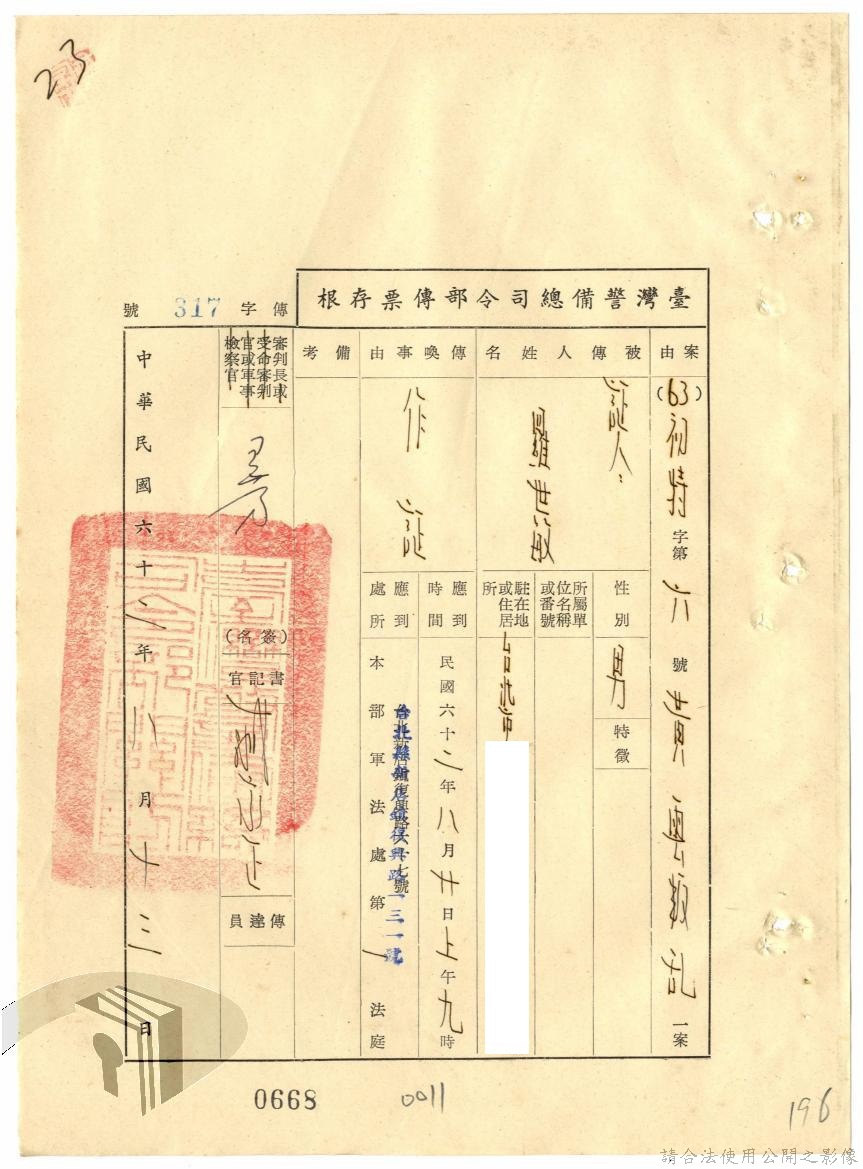 23
臺灣警備總司令部傳票存根
案由
(63)初特字第六號黃 叛乱一案
被傳人姓名
証人：
羅世敏
性別
男
特徵
所屬單位名稱或番號
駐在地或住居所
台北市
傳喚事由
作証
應到時間
民國六十三年八月廿日上午九時
應到處所
本部軍法處第一法庭
台北縣新店鎮復興路一三一號
備考
傳字317號
審判長或受命審判官或軍事檢察官
(簽名)
書記官
傳達員
中華民國六十三年八月十三日
0668
0011
196
請合法使用公開之影像